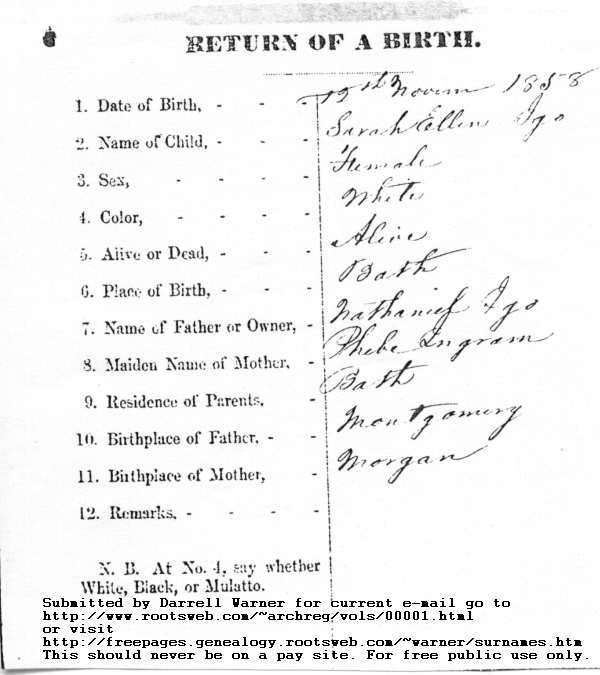 RETURN OF A BIRTH.
1. Date of Birth, - - - 12th Novem 1858
2. Name of Child, - - - Sarah Ellen Igo
3. Sex, - - - - Female
4. Color, - - - - White
5. Alive or Dead, - - - Alive
6. Place of Birth, - - - Bath
7. Name of Father or Owner, - Nathaniel Igo
8. Maiden Name of Mother, - Phebe Ingram
9. Residence of Parents, - Bath
10. Birthplace of Father, - - Montgomery
11. Birthplace of Mother, - Morgan
12. Remarks, - - - -
N. B. At No. 4, say whether
White, Black, or Mulatto.
Submitted by Darrell Warner for current e-mail go to
http://www.rootsweb.com/~archreg/vols/00001.html
or visit
http://freepages.genealogy.rootsweb.com/~warner/surnames.htm
This should never be on a pay site. For free public use only.